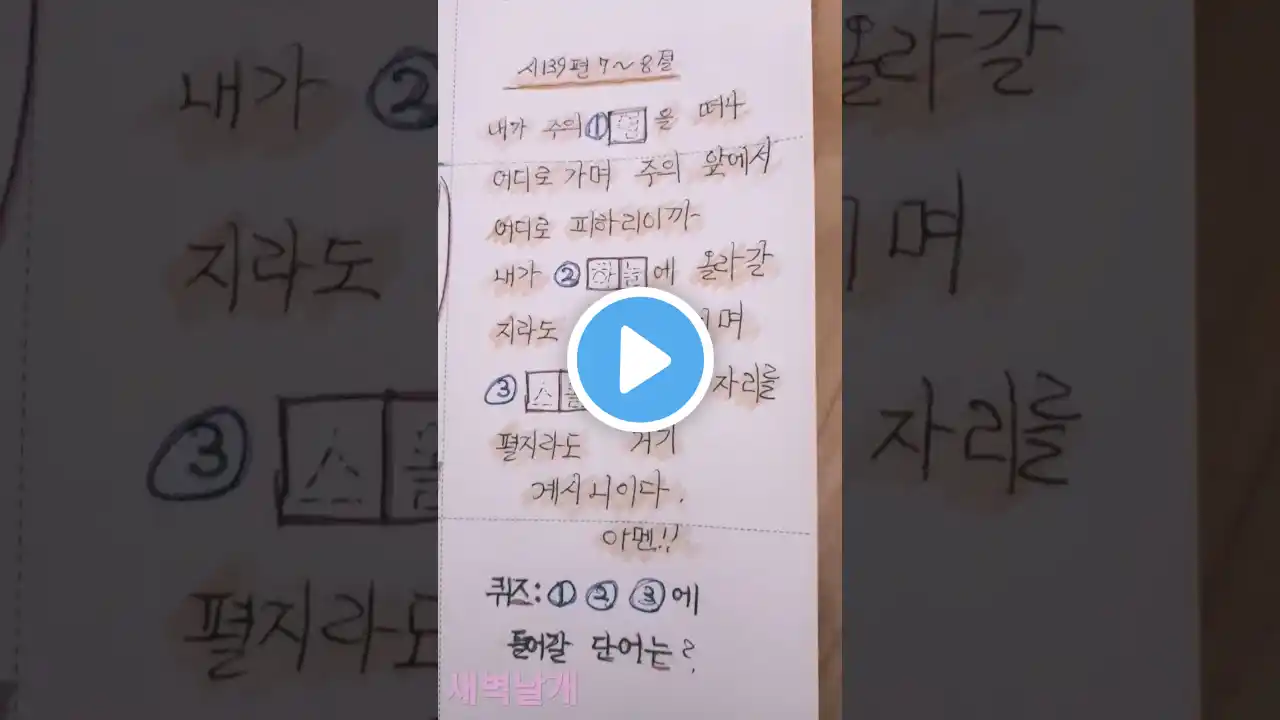 시139편 7~8절
내가 주의 ① 영 을 떠나
어디로 가며 주의 앞에서
어디로 피하리이까
내가 ② 하늘 에 올라갈
지라도 며
③ 스올 자리를
펼지라도 거기
계시니이다.
아멘!!
퀴즈: ① ② ③에
들어갈 단어는?
새벽날개